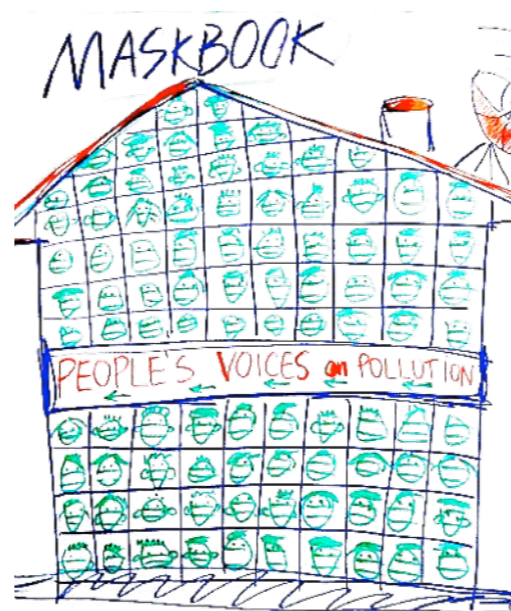 MASKBOOK
PEOPLE'S VOICES on POLLUTION